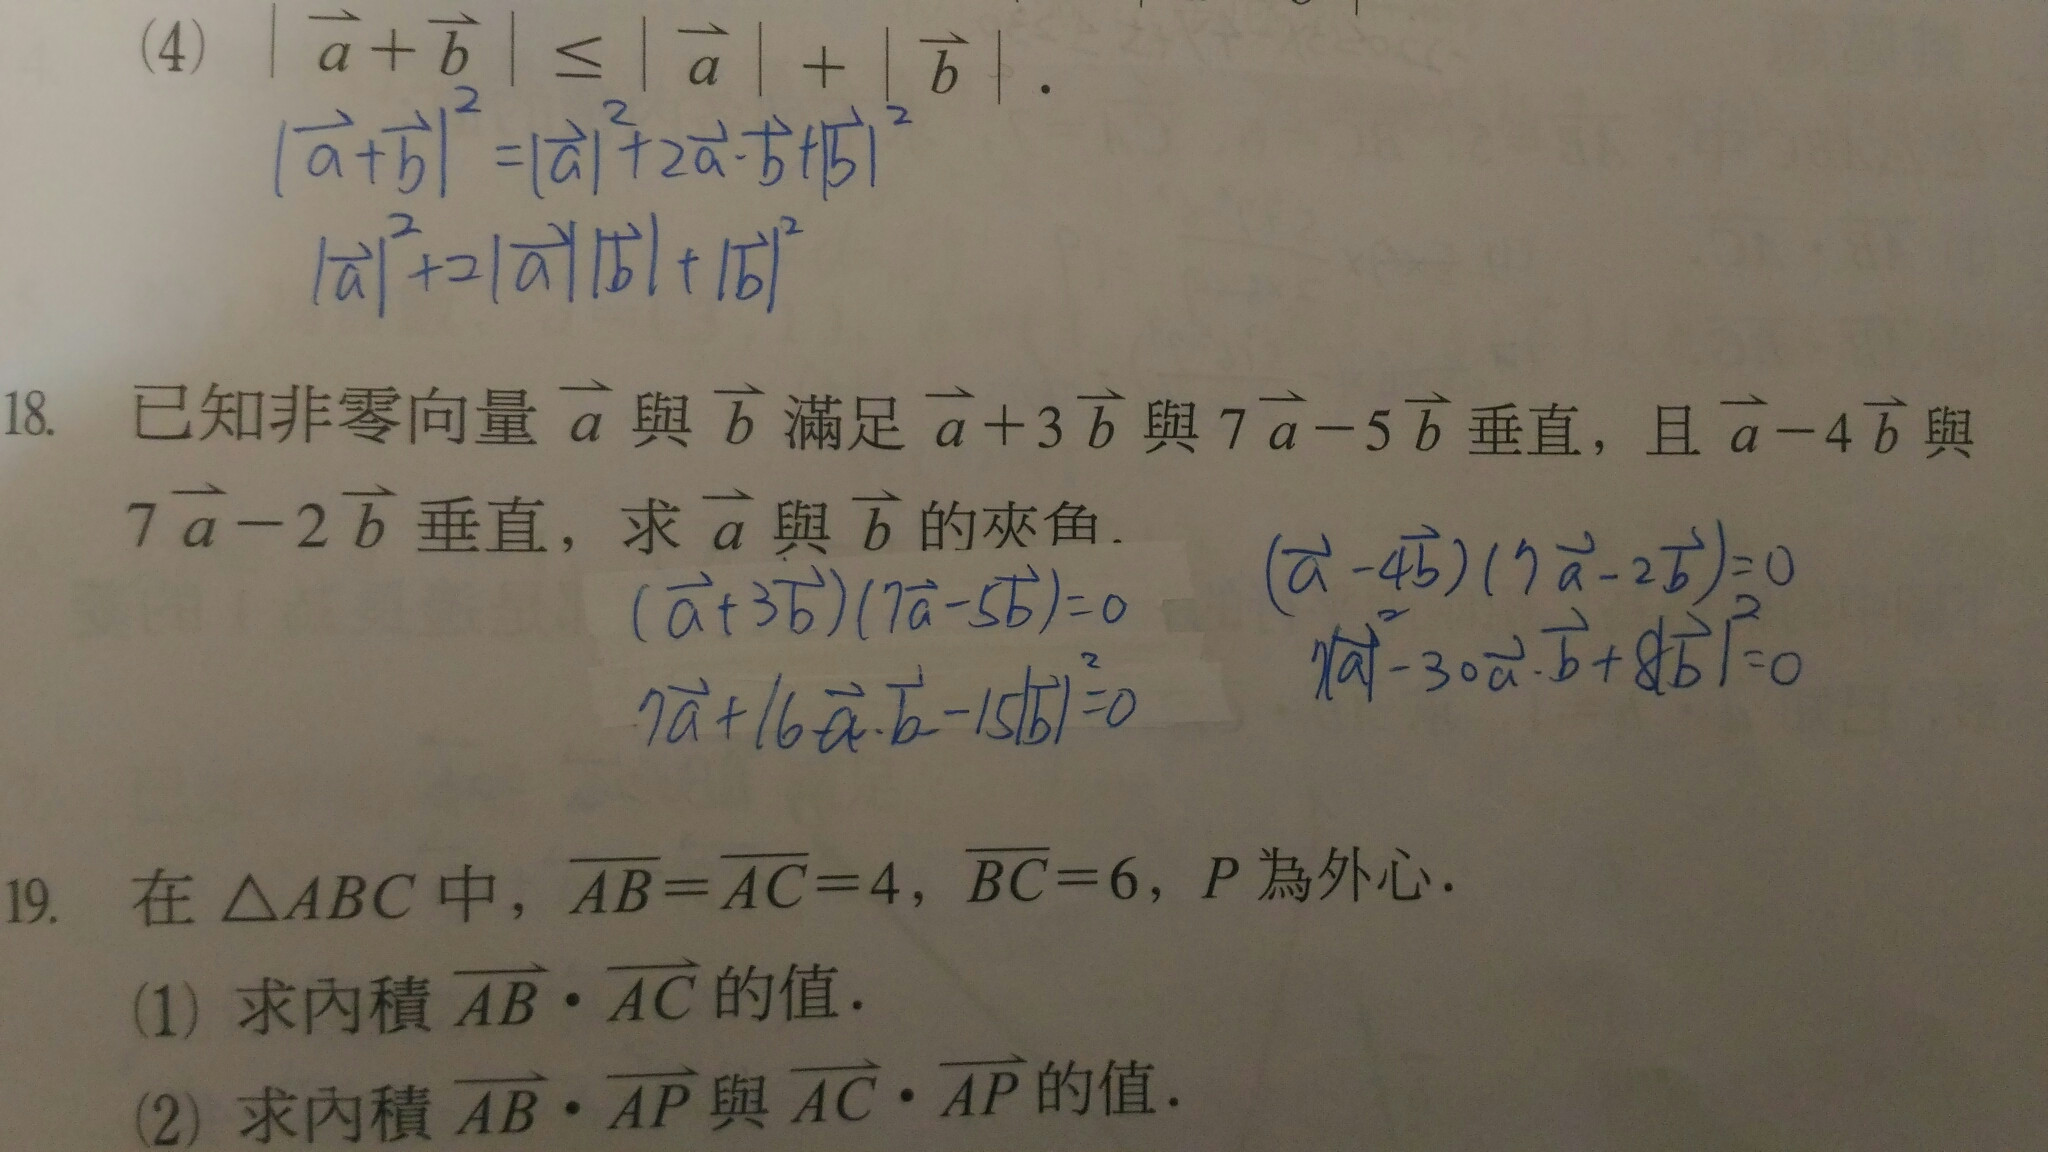 (4) |a⃗+b⃗| ≤ |a⃗| + |b⃗|.
|a⃗+b⃗|² = |a⃗|²+2a⃗·b⃗+|b⃗|²
|a⃗|²+2|a⃗||b⃗|+|b⃗|²
18. 已知非零向量 a⃗ 與 b⃗ 滿足 a⃗+3b⃗ 與 7a⃗−5b⃗ 垂直，且 a⃗−4b⃗ 與
7a⃗−2b⃗ 垂直，求 a⃗ 與 b⃗ 的夾角.
(a⃗+3b⃗)(7a⃗−5b⃗)=0
7a⃗+16a⃗·b⃗−15|b⃗|²=0
(a⃗−4b⃗)(7a⃗−2b⃗)=0
7|a⃗|²−30a⃗·b⃗+8|b⃗|²=0
19. 在 △ABC 中，A̅B̅=A̅C̅=4，B̅C̅=6，P 為外心.
(1) 求內積 AB⃗·AC⃗ 的值.
(2) 求內積 AB⃗·AP⃗ 與 AC⃗·AP⃗ 的值.